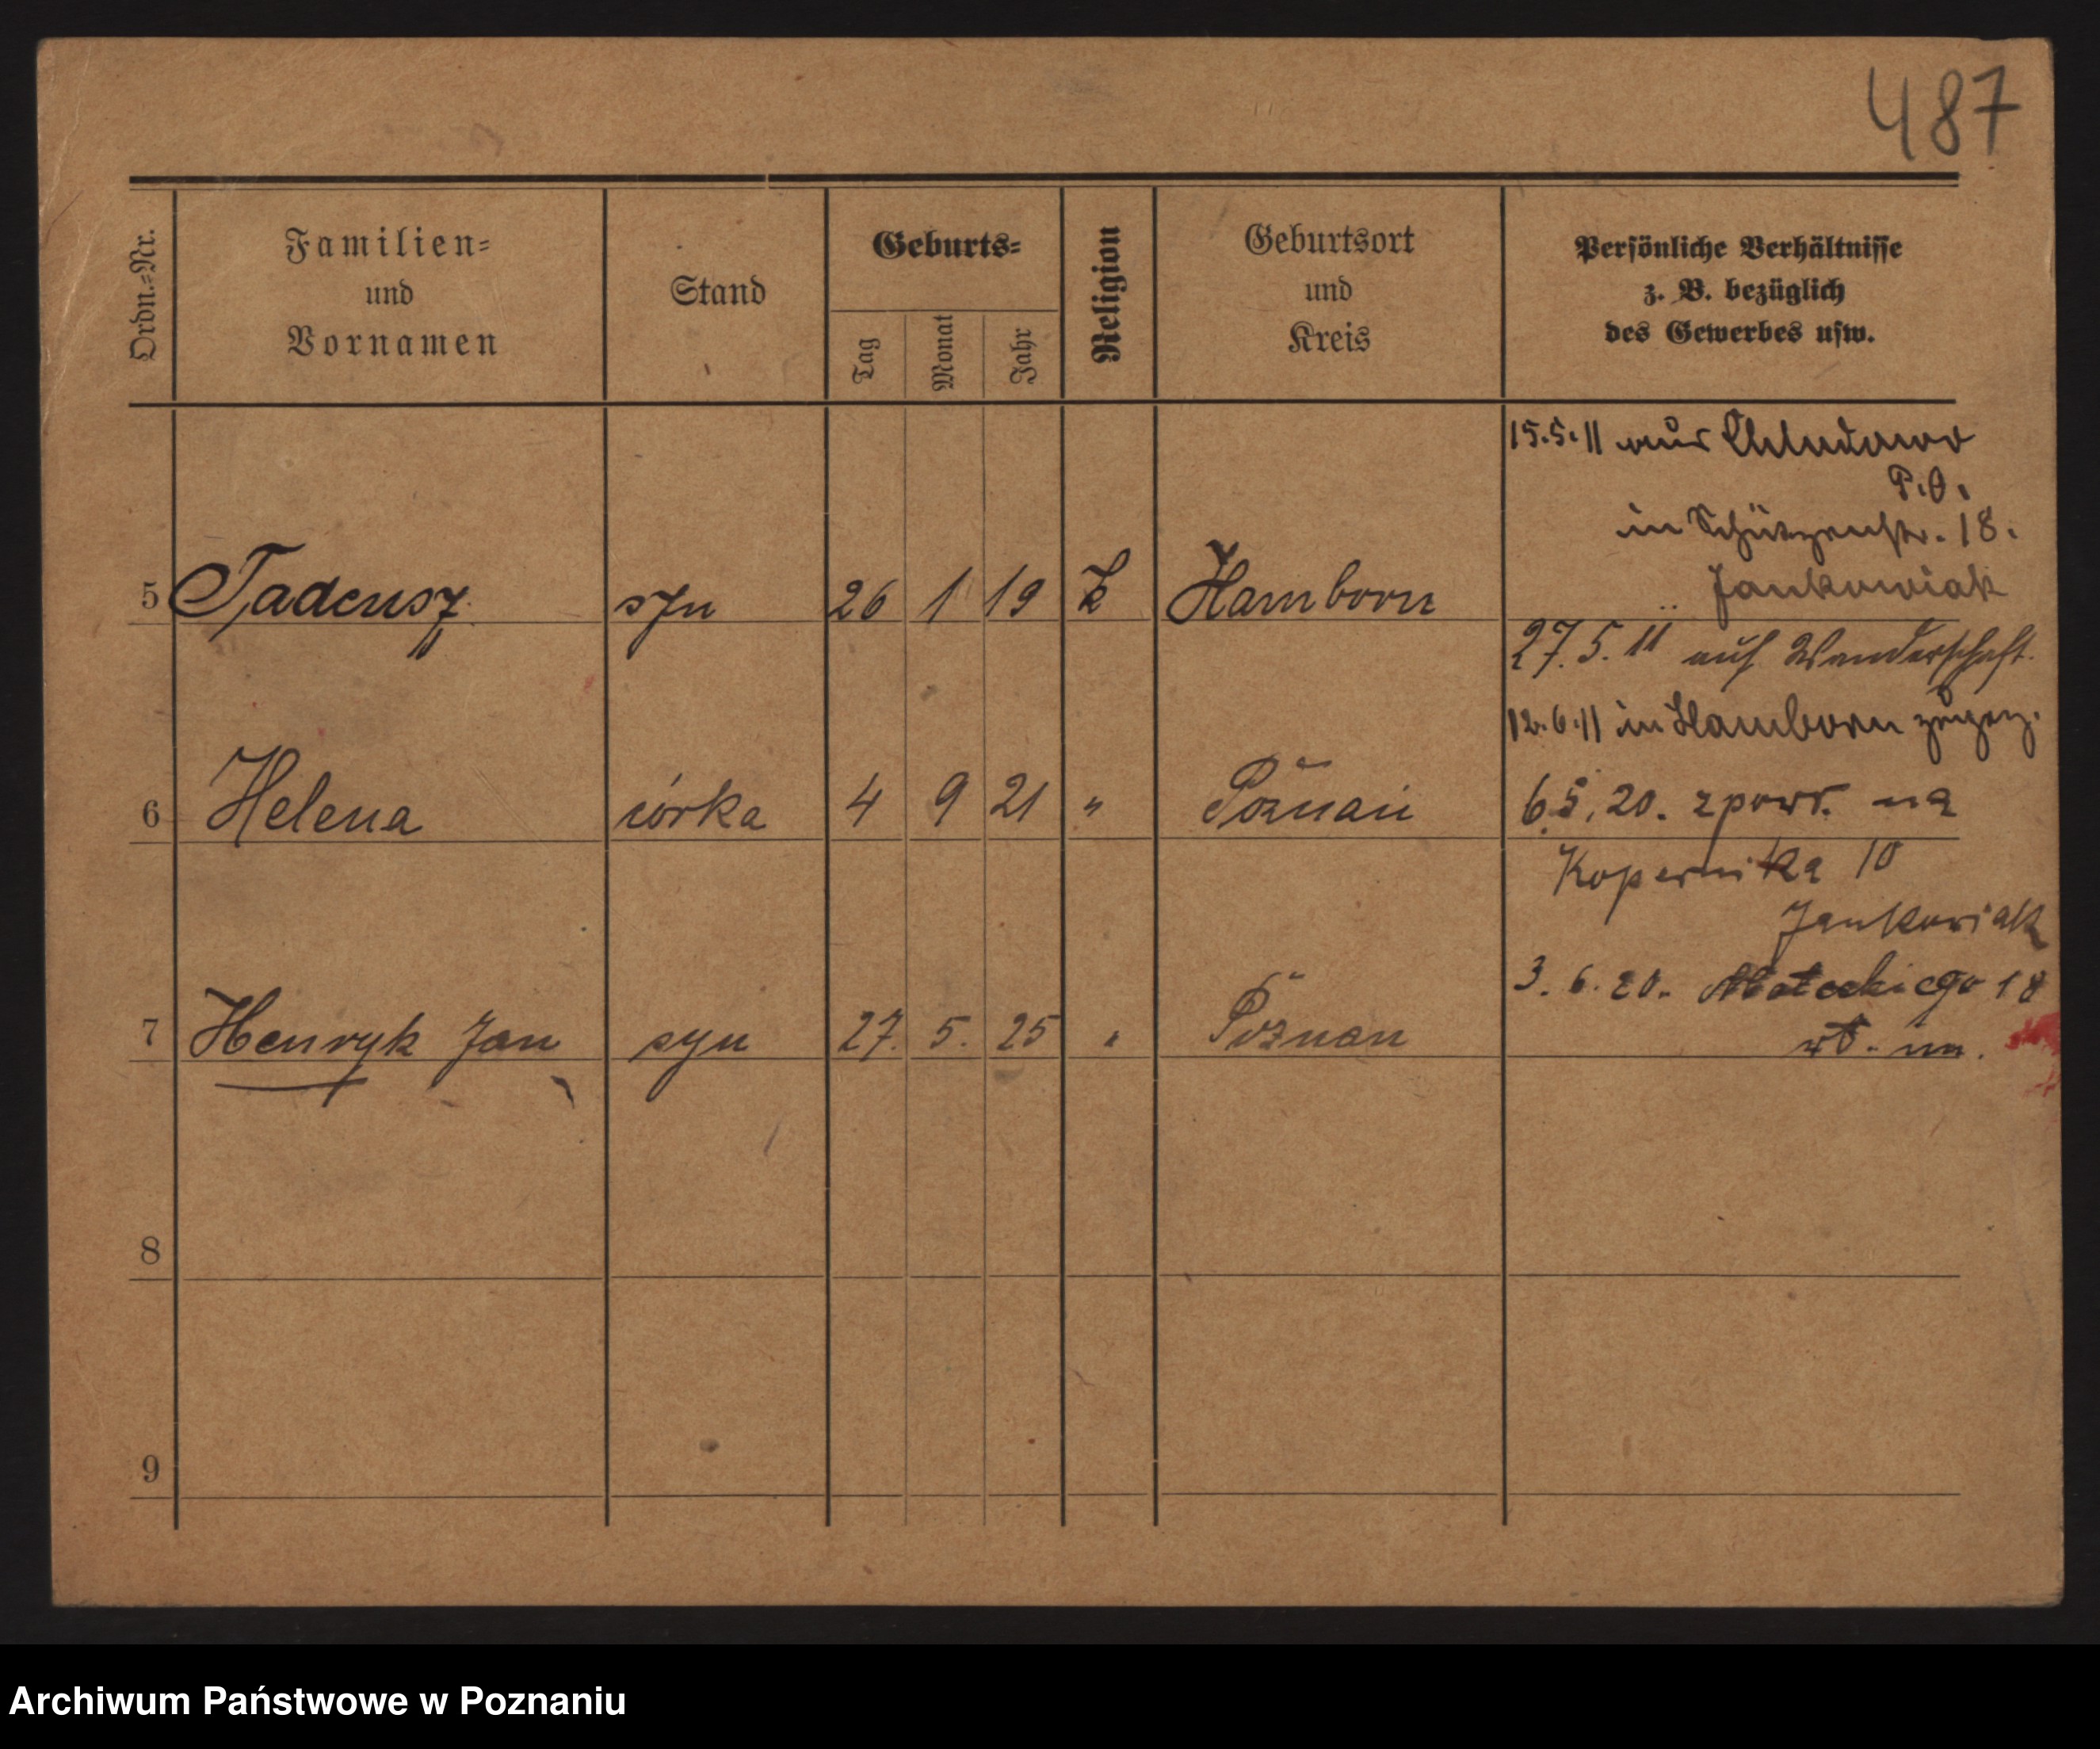 487
Ordn.=Nr.
Familien=
und
Vornamen
Stand
Geburts=
Tag Monat Jahr
Religion
Geburtsort
und
Kreis
Persönliche Verhältnisse
z. B. bezüglich
des Gewerbes usw.
15.5.11 aus Chludowo
P.O.
in Schützenstr. 18.
Jankowiak
5 Tadeusz syn 26 1 19 k Hamborn
27.5.11 auf Wanderschaft.
12.6.11 in Hamborn zugez.
6 Helena córka 4 9 21 " Poznań
6.5.20. zpowr. na
Kopernika 10
Jankowiak
3.6.20. Małeckiego 18
7 Henryk Jan syn 27. 5. 25 " Poznan
8
9
Archiwum Państwowe w Poznaniu